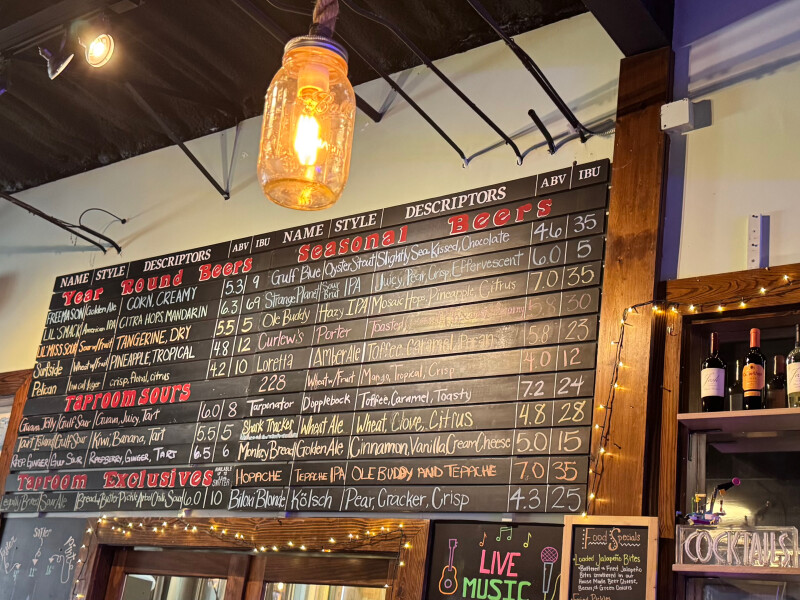 NAME STYLE DESCRIPTORS ABV IBU
Year Round Beers
FREEMASON Golden Ale CORN, CREAMY 5.3 9
LIL' SMACK American IPA CITRA HOPS MANDARIN 6.3 69
LIL MISS SOUR Sour w/ Fruit TANGERINE, DRY 5.5 5
Surfside Wheat w/ Fruit PINEAPPLE, TROPICAL 4.8 12
Pelican lager crisp, floral, citrus 4.2 10
Taproom Sours
Guava Juicy Gulf Sour Guava, Juicy, Tart 6.0 8
Tart Island Gulf Sour Kiwi, Banana, Tart 5.5 5
RASP. GINGER Gulf Sour RASPBERRY, GINGER, TART 6.5 6
Taproom Exclusives
Sour Ale Bread & Butter Pickle Sour 6.0 10
NAME STYLE DESCRIPTORS ABV IBU
Seasonal Beers
Gulf Blue Oyster Stout Slightly Sea Kissed, Chocolate 4.6 35
Strange Planet IPA Juicy, Pear, Crisp, Effervescent 6.0 5
Ole Buddy Hazy IPA Mosaic Hops, Pineapple Citrus 7.0 35
Curlew's Porter Toasted, 5.8 30
Loretta Amber Ale Toffee, Caramel, 5.8 23
228 Wheat w/ Fruit Mango, Tropical, Crisp 4.0 12
Tarponator Dopplebock Toffee, Caramel, Toasty 7.2 24
Shark Tracker Wheat Ale Wheat, Clove, Citrus 4.8 28
Monkey Bread Golden Ale Cinnamon, Vanilla Cream Cheese 5.0 15
HOPACHE TEPACHE IPA OLE BUDDY AND TEPACHE 7.0 35
Biloxi Blonde Kölsch Pear, Cracker, Crisp 4.3 25
LIVE
MUSIC
Food Specials
Loaded Jalapeño Bites
Battered & Fried Jalapeño
Bites smothered in our
House Made Beer Queso,
Bacon, & Green Onions
COCKTAILS